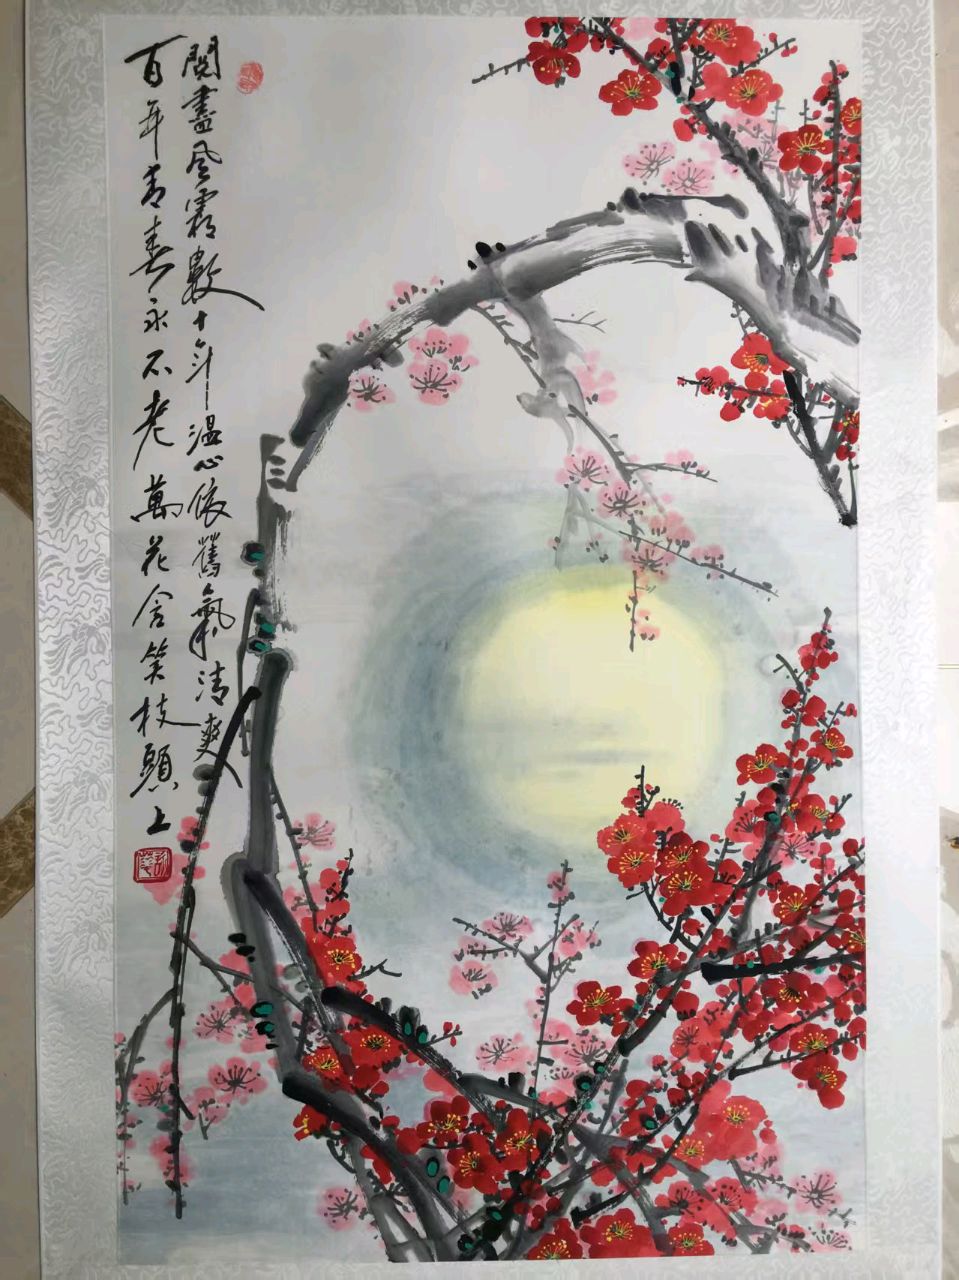 閱盡風霜數十年温心依舊氣清爽
百年青春永不老萬花含笑枝頭上